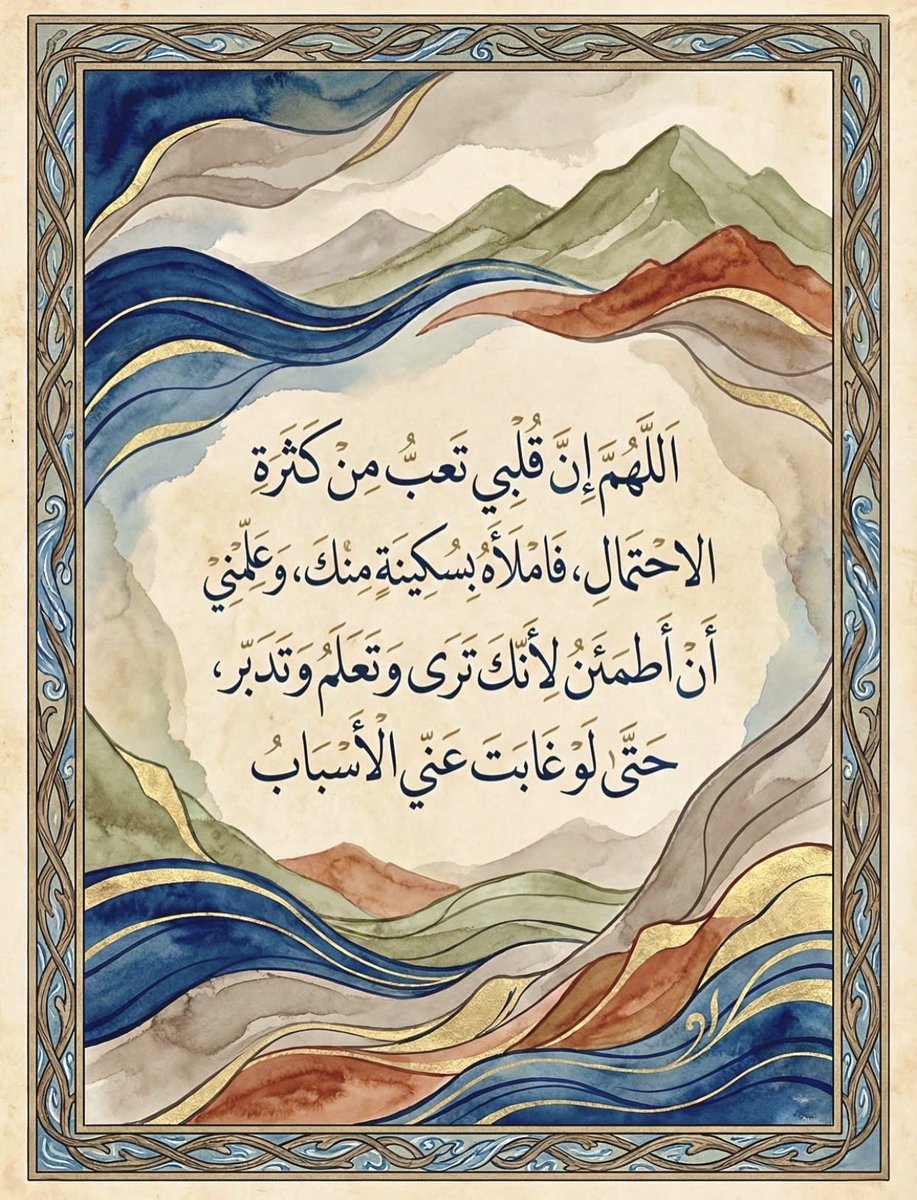 اَللَّهُمَّ إِنَّ قُلْبِي تَعبُّ مِنْ كَثَرَةِ
الاحْتمَالِ، فَامْلَأَهُ بِسُكِينَةٍ مِنْكَ، وَعَلِّمْنِيْ
أَنْ أَطمَئنُ لِأَنَّكَ تَرَى وَتَعلَمُ وَتَدَبّر،
حَتَّى لَوْ غَابَتَ عَنّي الْأَسْبَابُ